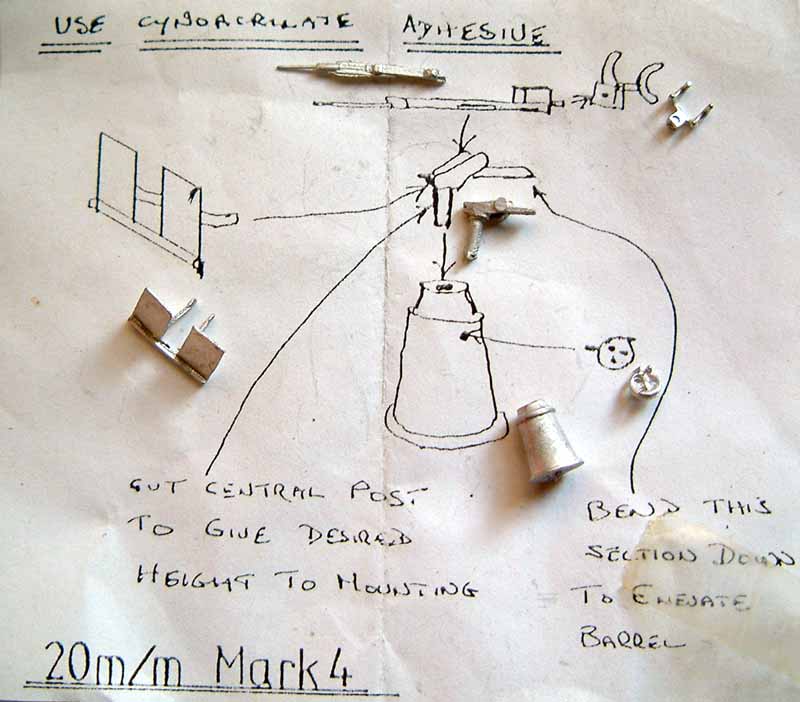 USE CYNOACRILATE ADHESIVE
CUT CENTRAL POST
TO GIVE DESIRED
HEIGHT TO MOUNTING
BEND THIS
SECTION DOWN
TO ENEVATE
BARREL
20m/m Mark 4